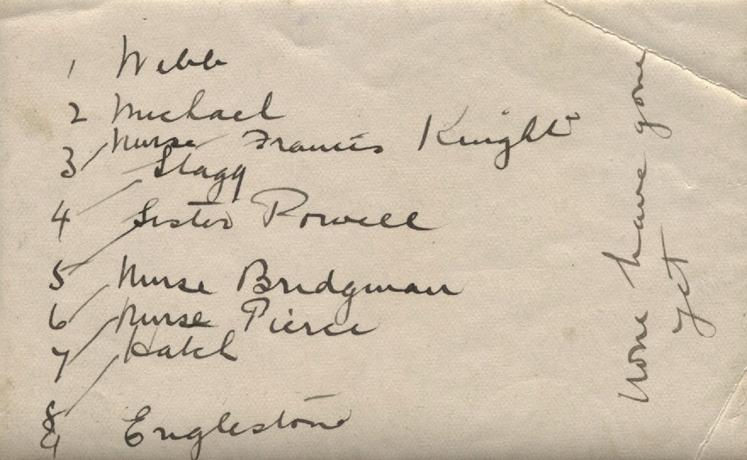 1 Webb
2 Michael
3 Nurse Francis Knight
4 Stagg
5 Sister Powell
6 Nurse Bridgman
7 Nurse Pierce
8 Hatch
9 Englestone
None have gone
yet